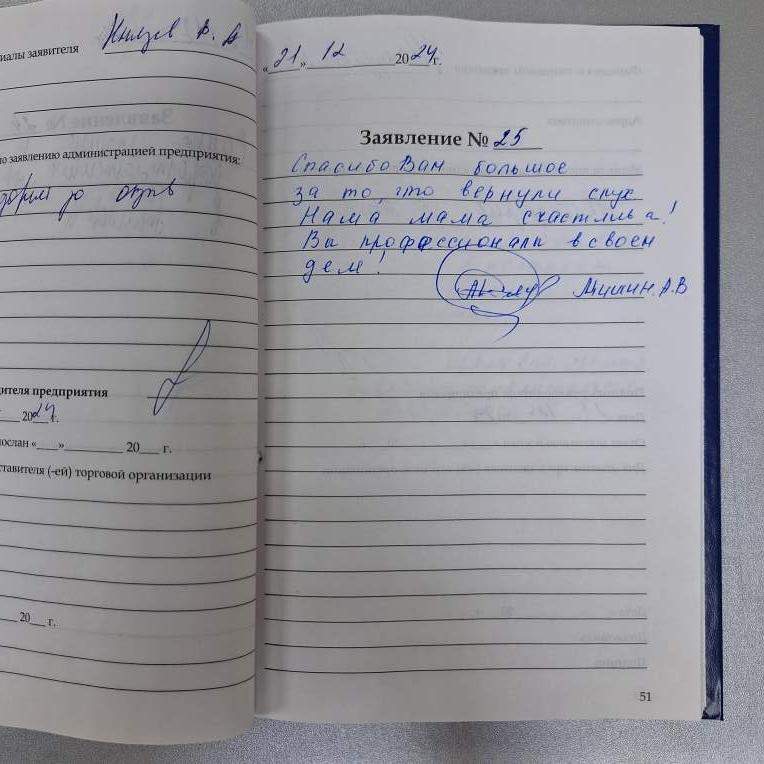 иалы заявителя Князев В. А
по заявлению администрацией предприятия:
за отзыв
дителя предприятия
2024 г.
послан «___» ______ 20__ г.
ставителя (-ей) торговой организации
20__ г.
«21» 12 2024г.
Заявление № 25
Спасибо Вам большое
за то, что вернули слух
Наша мама счастлива!
Вы профессионалы в своем
деле!
А.В
51